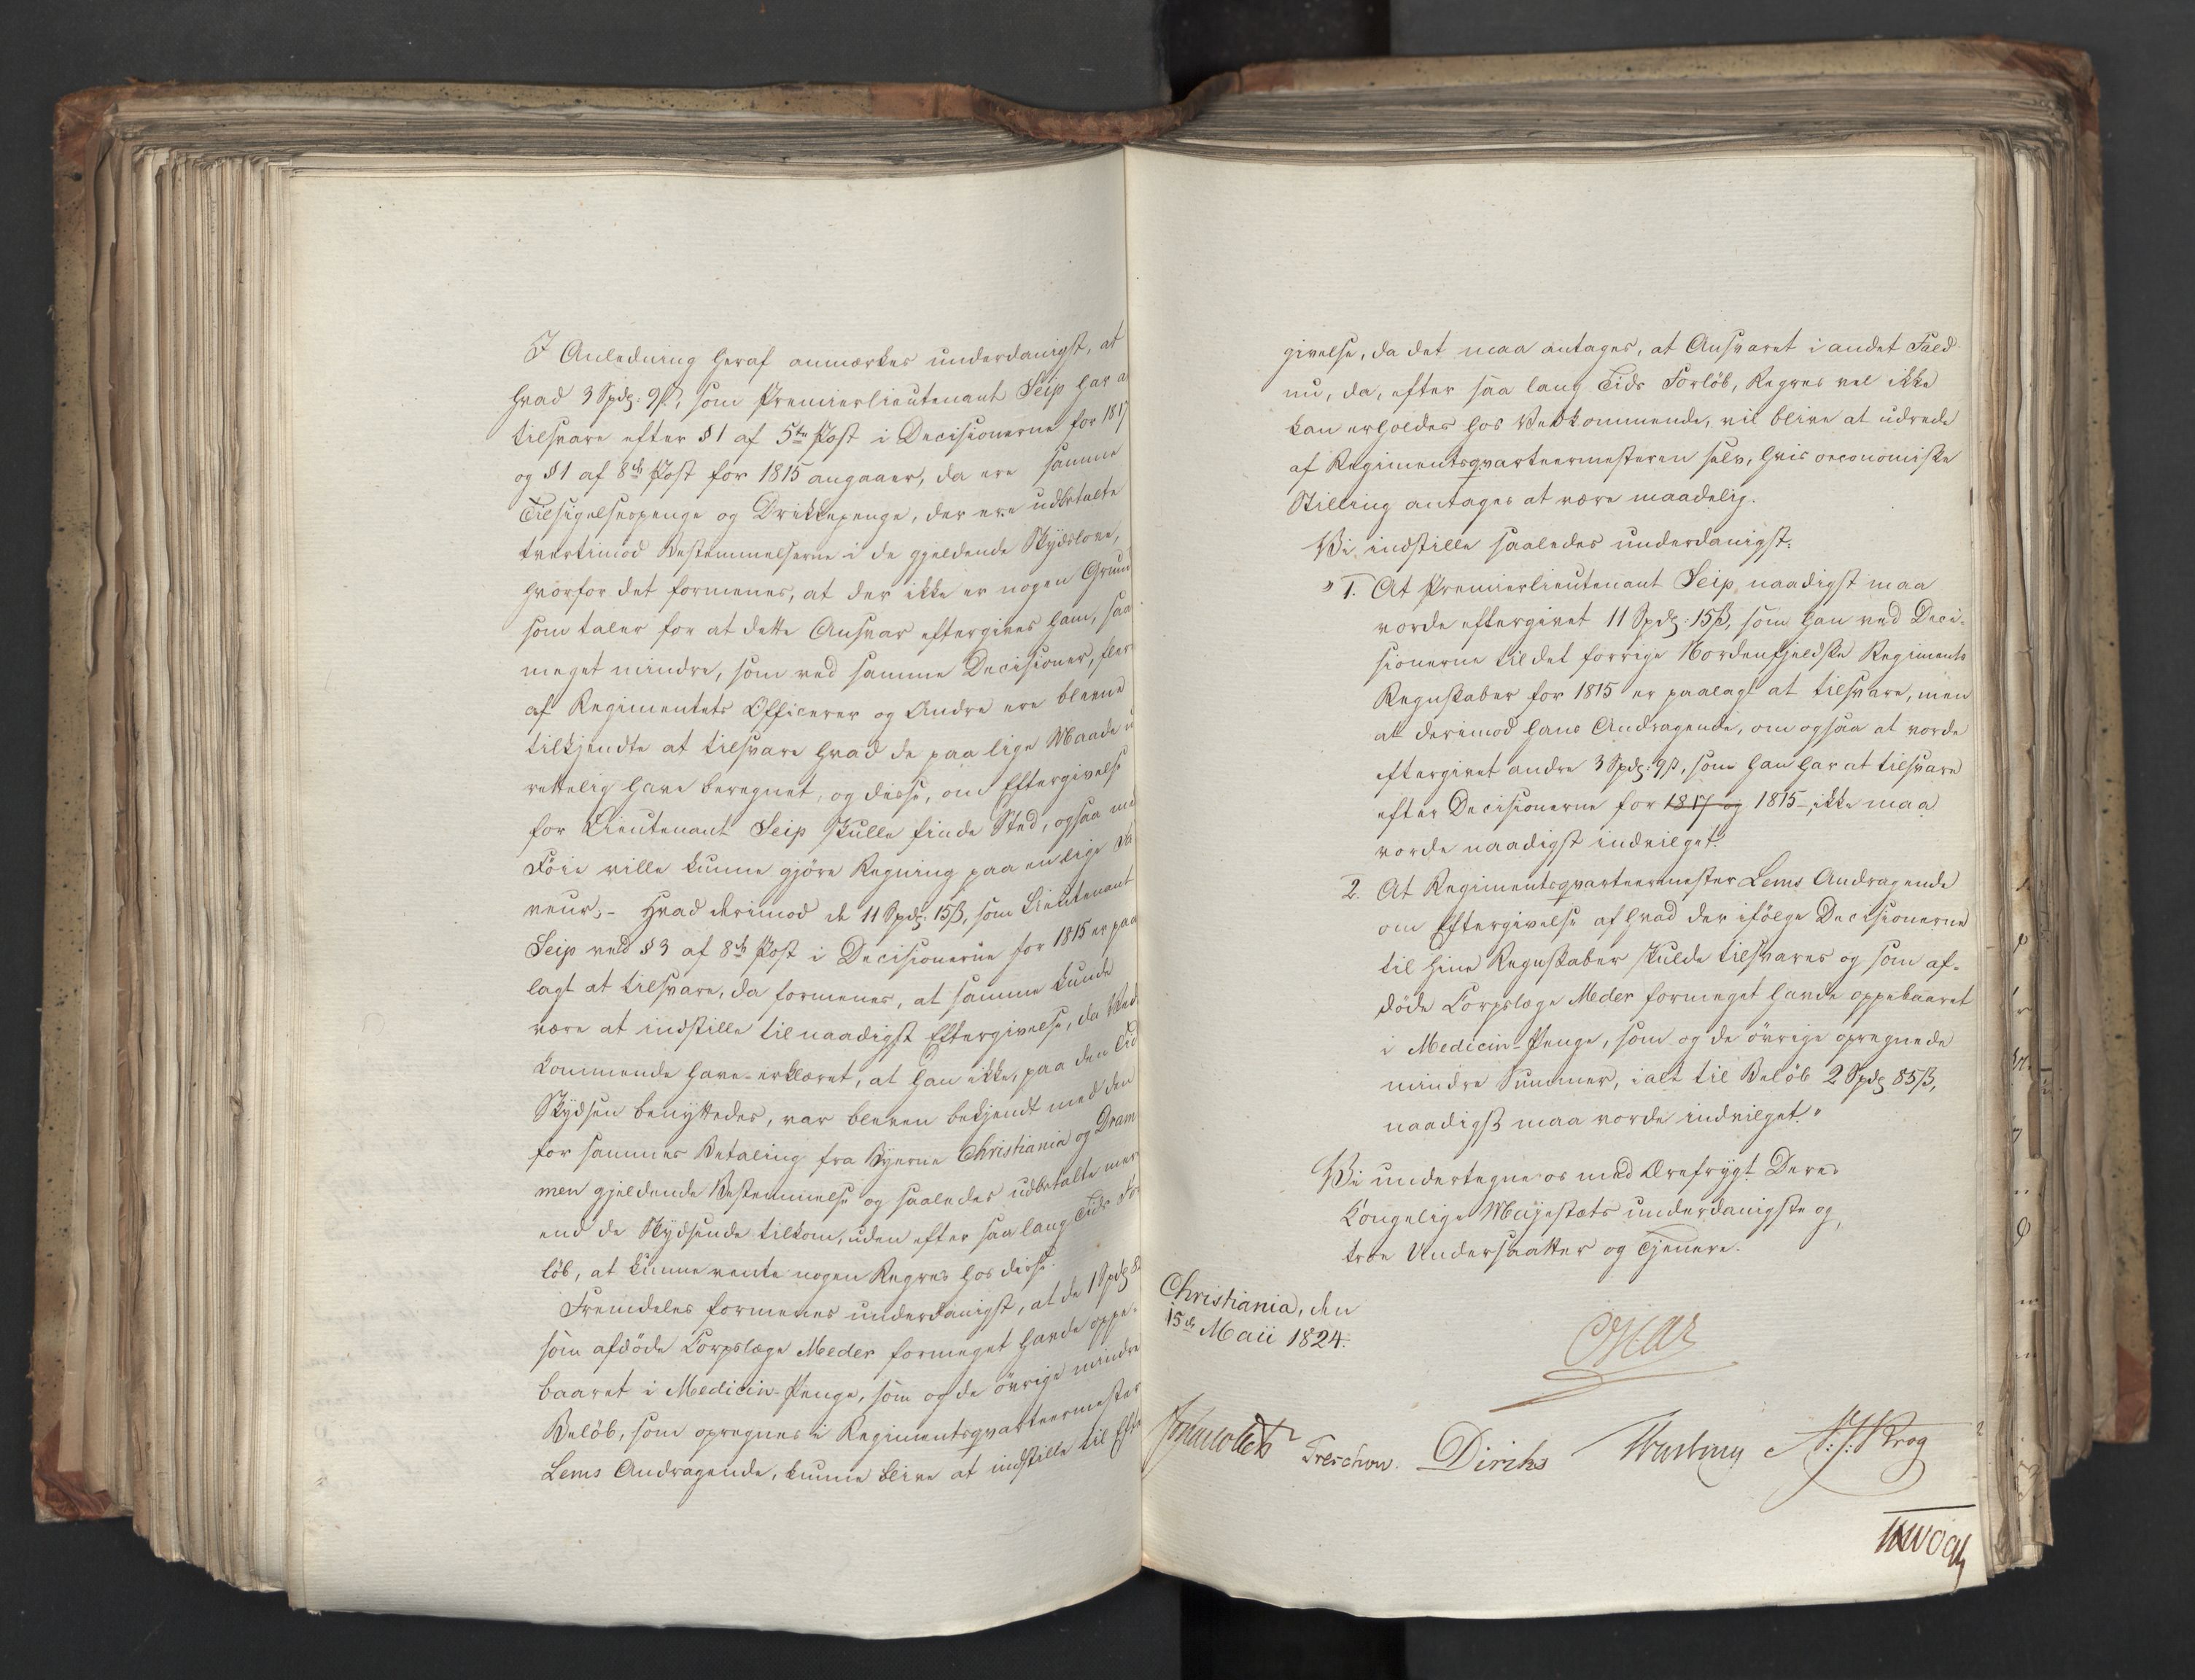 I Anledning heraf anmærkes underdanigst, at
hvad 3 Spdr: 9 ß, som Premierlieutenant Seip har a
tilsvare efter § 1 af 5te Post i Decisionerne for 1817
og § 1 af 8de Post for 1815 angaaer, da ere samme
Tilsigelsespenge og Drikkepenge, der ere udbetalte
tvertimod Bestemmelserne i de gjeldende Skydslove,
hvorfor det formenes, at der ikke er nogen Grund
som taler for at dette Ansvar eftergives ham, saa
meget mindre, som ved samme Decisioner, fler
af Regimentets Officerer og Andre ere blevne
tilkjendte at tilsvare hvad de paa lige Maade u
rettelig have beregnet, og disse, om Eftergivelse
for Lieutenant Seip skulle finde Sted, ogsaa me
Föie ville kunne gjöre Regning paa en lige Fa
veur;- Hvad derimod de 11 Spdr: 15 ß, som Lieutenant
Seip ved § 3 af 8de Post i Decisionerne for 1815 er paa
lagt at tilsvare, da formenes, at samme kunde
være at indstille til naadigst Eftergivelse, da Ved
kommende have erklæret, at han ikke, paa den Tid
Skydsen benyttedes, var bleven bekjendt med den
for sammes Betaling fra Byerne Christiania og Dram
men gjeldende Bestemmelse og saaledes udbetalte mer
end de Skydsende tilkom, uden efter saa lang Tids For
löb, at kunne vente nogen Regres hos disse.
Fremdeles formenes underdanigst, at de 1 Spdr 8
som afdöde Corpslæge Meder formeget havde oppe-
baaret i Medicin-Penge, som og de övrige mindre
Belöb, som opregnes i Regimentsqvarteermester
Lems Andragende, kunne blive at indstille til Efter
givelse, da det maa antages, at Ansvaret i andet Fald
nu, da, efter saa lang Tids Forlöb, Regres vel ikke
kan erholdes hos Vedkommende, vil blive at udrede
af Regimentsqvarteermesteren selv, hvis oeconomiske
Stilling antages at være maadelig.
Vi indstille saaledes underdanigst:
"1. At Premierlieutenant Seip naadigst maa
vorde eftergivet 11 Spdr: 15 ß, som han ved Deci-
sionerne til det forrige Nordenfjeldske Regiments
Regnskaber for 1815 er paalagt at tilsvare, men
at derimod hans Andragende, om ogsaa at vorde
eftergivet andre 3 Spdr: 9 ß, som han har at tilsvare
efter Decisionerne for 1817 og 1815, ikke maa
vorde naadigst indvilget.
2. At Regimentsqvarteermester Lems Andragende
om Eftergivelse af hvad der ifölge Decisionerne
til hine Regnskaber skulde tilsvares og som af-
döde Corpslæge Meder formeget havde oppebaaret
i Medicin-Penge, som og de övrige opregnede
mindre Summer, ialt til Belöb 2 Spdr 85 ß,
naadigst maa vorde indvilget."
Vi undertegne os med Ærefrygt Deres
Kongelige Majestæts underdanigste og
troe Undersaatter og Tjenere.
Christiania, den
15de Maii 1824.
Oscar
Treschow. Diriks N: J: Krog